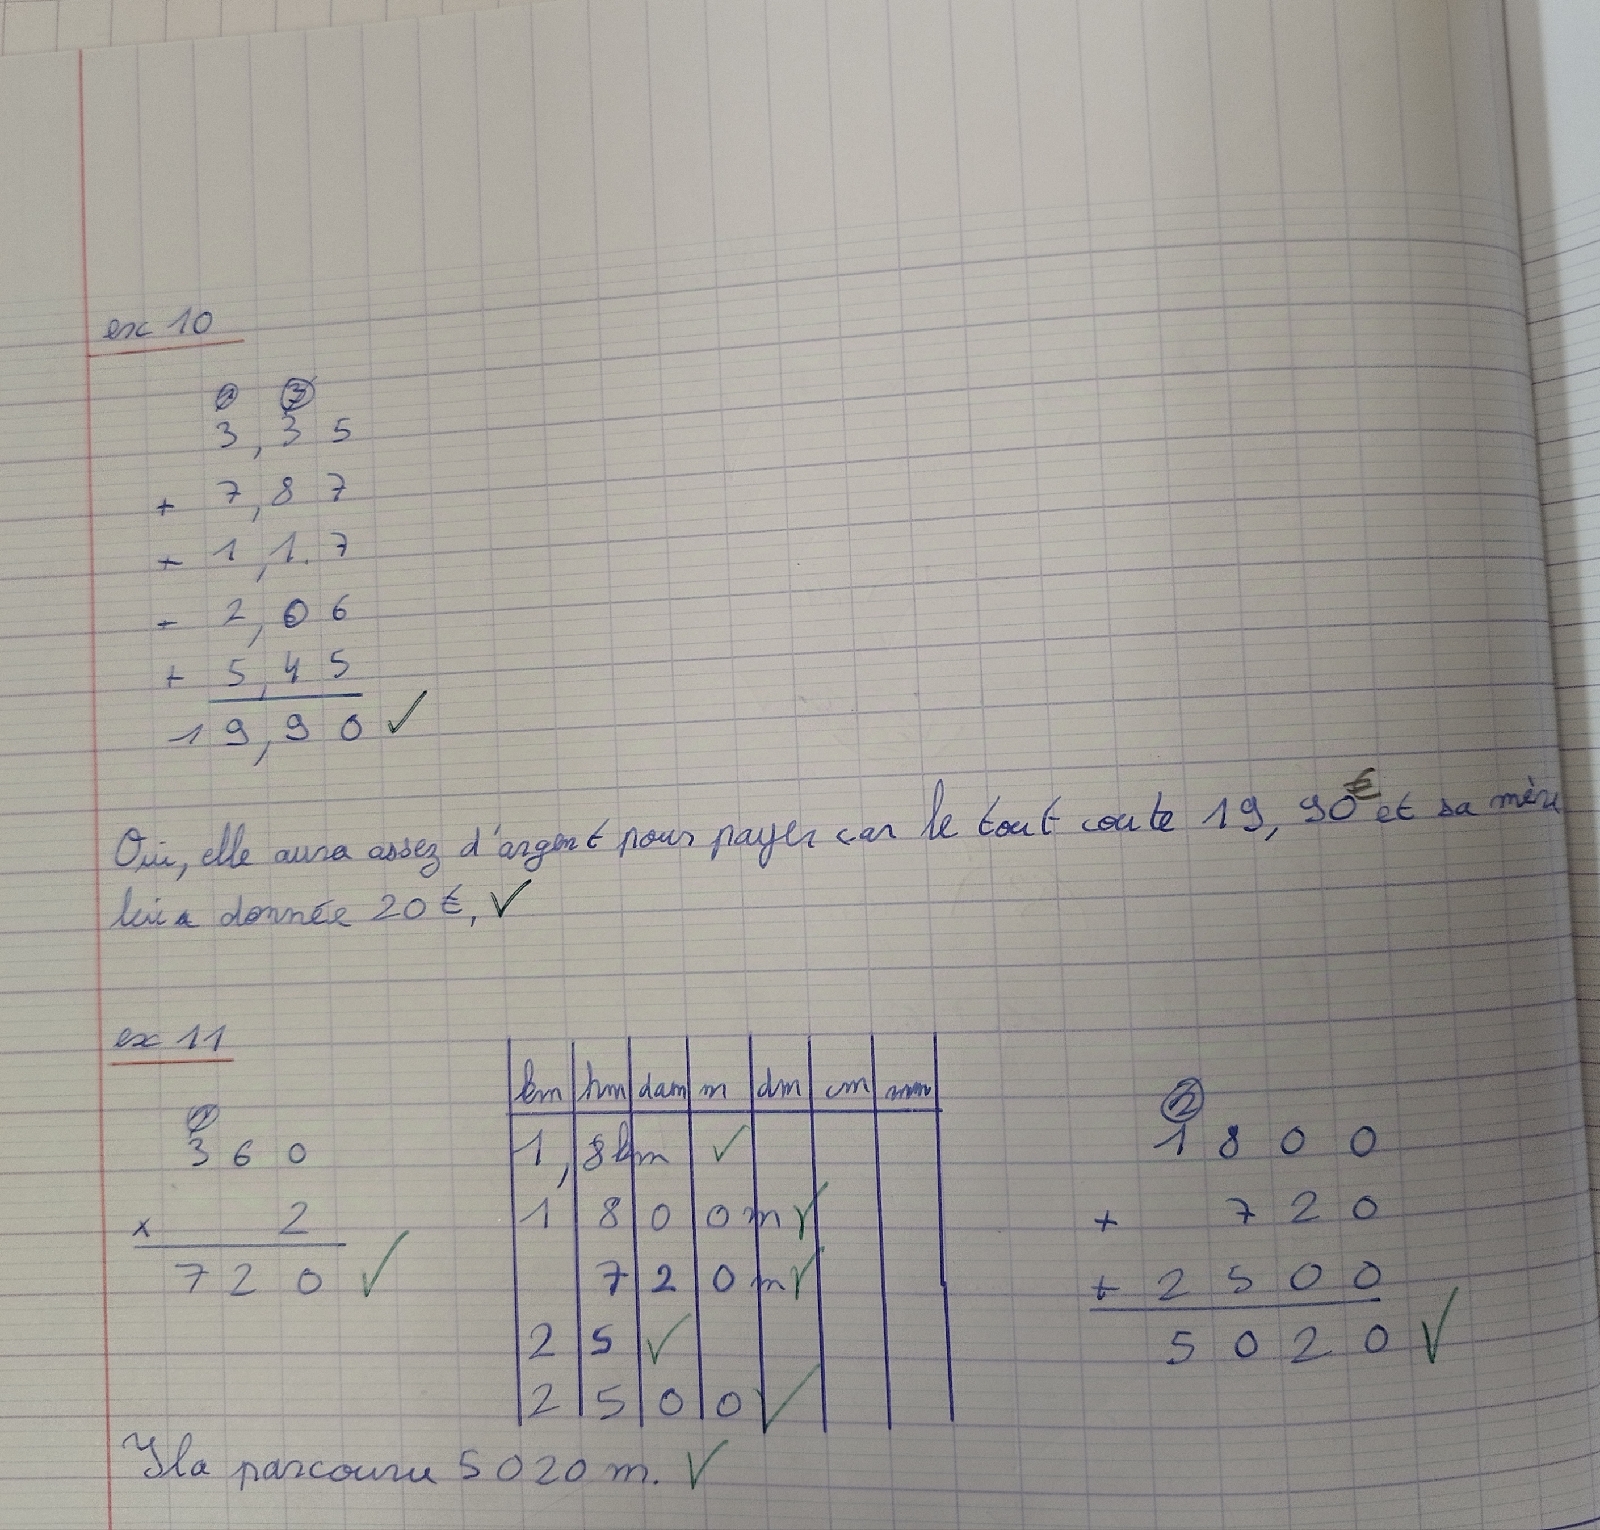 ex 10
1 3
3,35
+ 7,87
+ 1,17
+ 2,06
+ 5,45
19,90 ✓
Oui, elle aura assez d'argent pour payer car le tout coute 19,90€ et sa mère
lui a donnée 20€, ✓
ex 11
1
360
x 2
720 ✓
km hm dam m dm cm mm
1,8km ✓
1 8 0 0 m ✓
7 2 0 m ✓
2 5 ✓
2 5 0 0 ✓
2
1800
+ 720
+ 2500
5020 ✓
Il a parcouru 5020 m. ✓